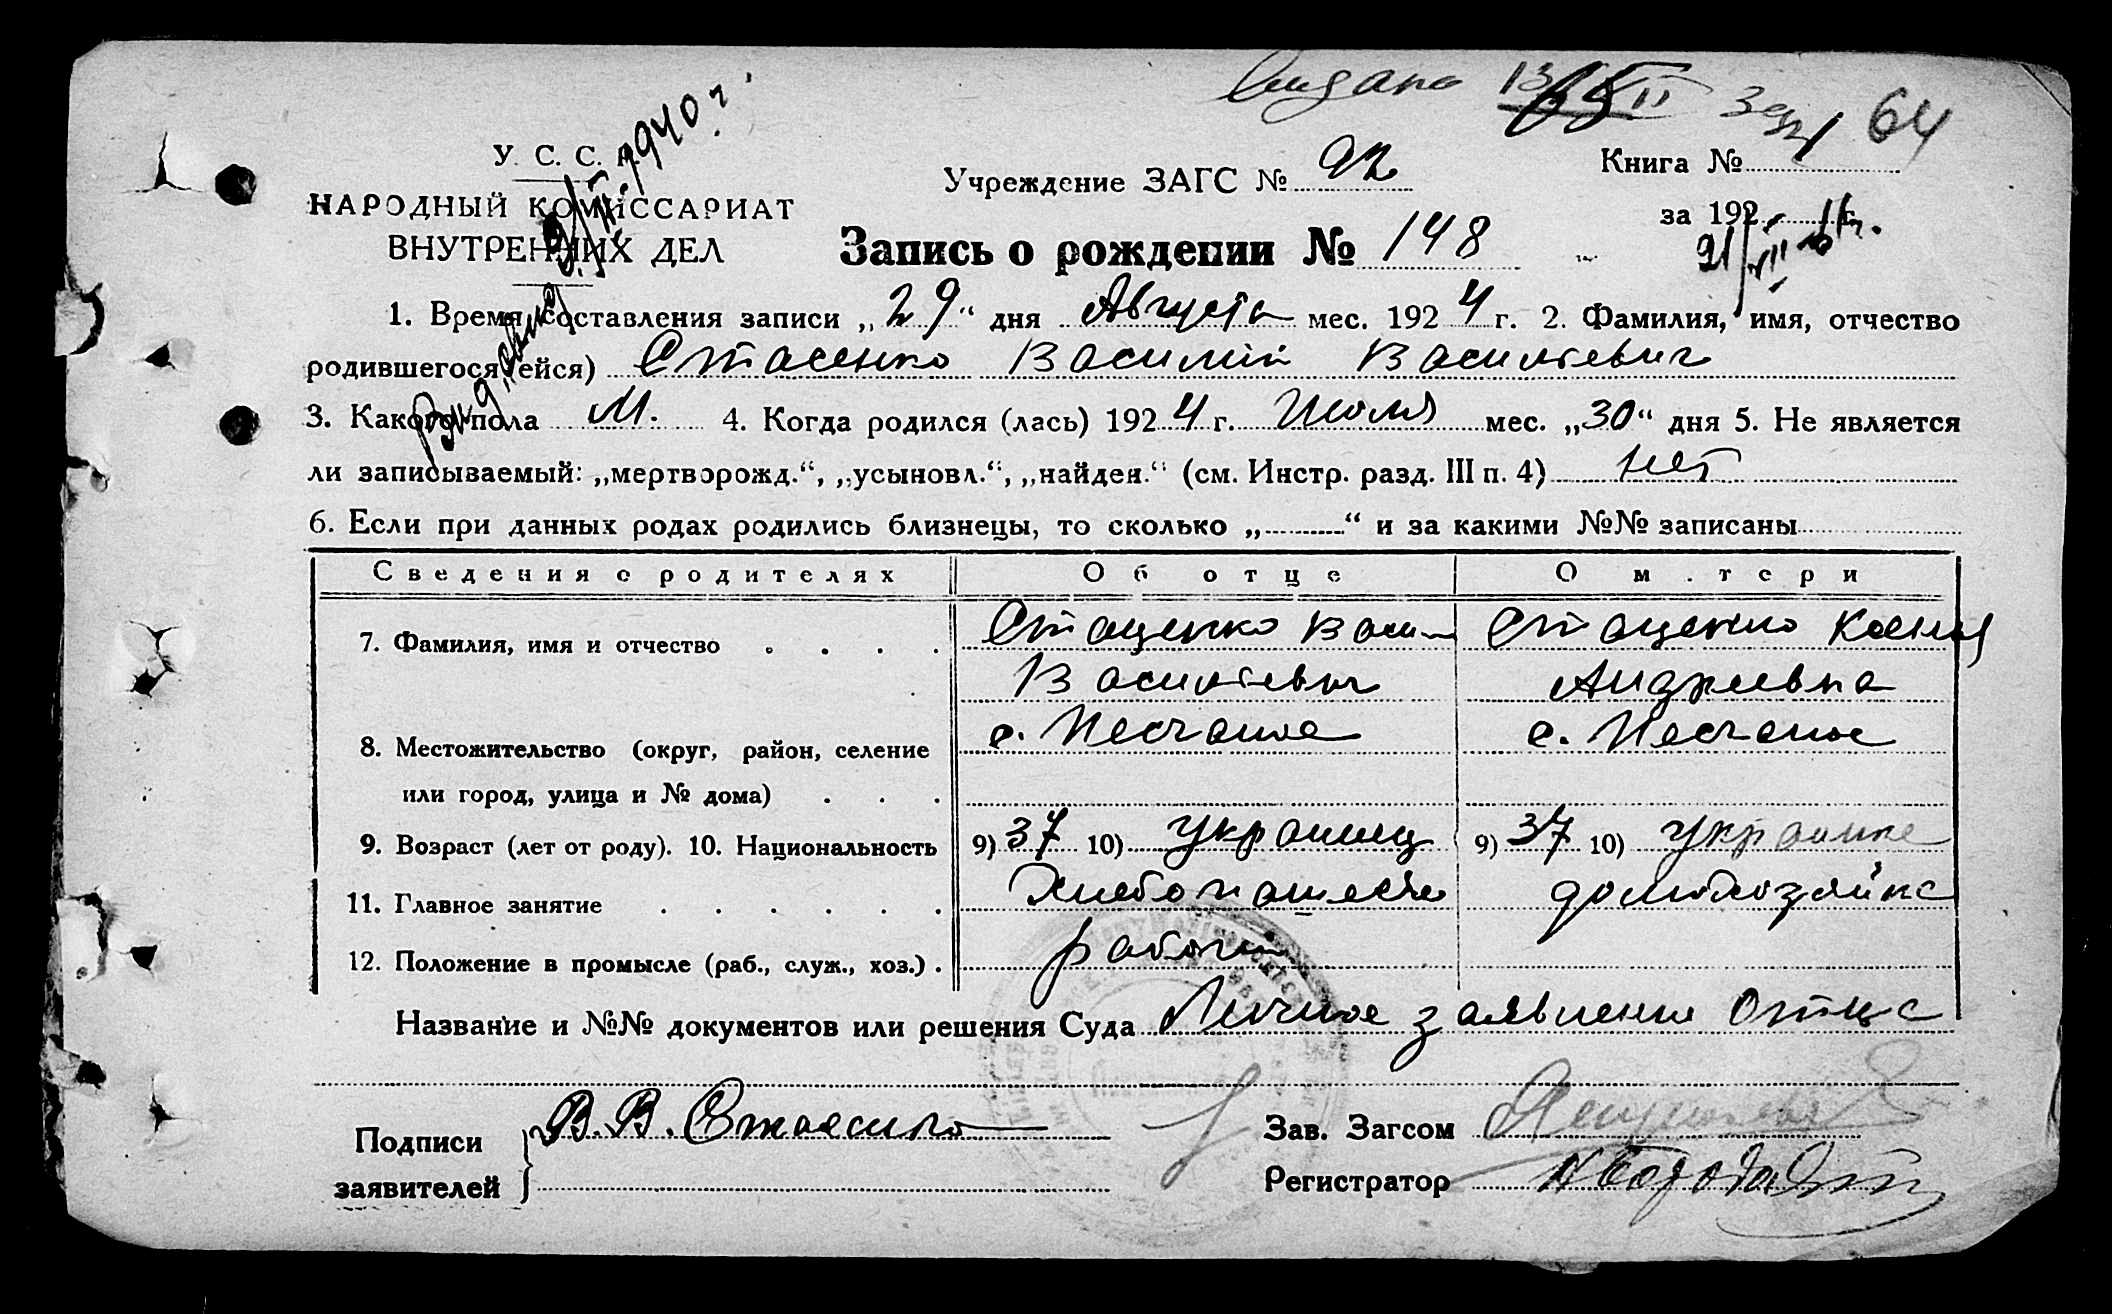 64
У. С. С. Р.
НАРОДНЫЙ КОМИССАРИАТ
ВНУТРЕННИХ ДЕЛ
Учреждение ЗАГС № 92
Книга №
за 192 г.
Запись о рождении № 148
1. Время составления записи „29“ дня Августа мес. 1924 г. 2. Фамилия, имя, отчество
родившегося (ейся) Стасенко Василий Васильевич
3. Какого пола М. 4. Когда родился (лась) 1924 г. Июля мес. „30“ дня 5. Не является
ли записываемый: „мертворожд.“, „усыновл.“, „найден.“ (см. Инстр. разд. III п. 4) нет
6. Если при данных родах родились близнецы, то сколько „ “ и за какими №№ записаны
Сведения о родителях Об отце О м.тери
7. Фамилия, имя и отчество Стаценко Васил Стаценко Ксения
Васильевич Андреевна
8. Местожительство (округ, район, селение с. Песчаное с. Песчаное
или город, улица и № дома)
9. Возраст (лет от роду). 10. Национальность 9) 37 10) украинец 9) 37 10) украинка
11. Главное занятие Хлебопашество домохозяйка
12. Положение в промысле (раб., служ., хоз.) рабочий
Название и №№ документов или решения Суда Личное заявление отца
Подписи В. В. Стасенко Зав. Загсом
заявителей Регистратор